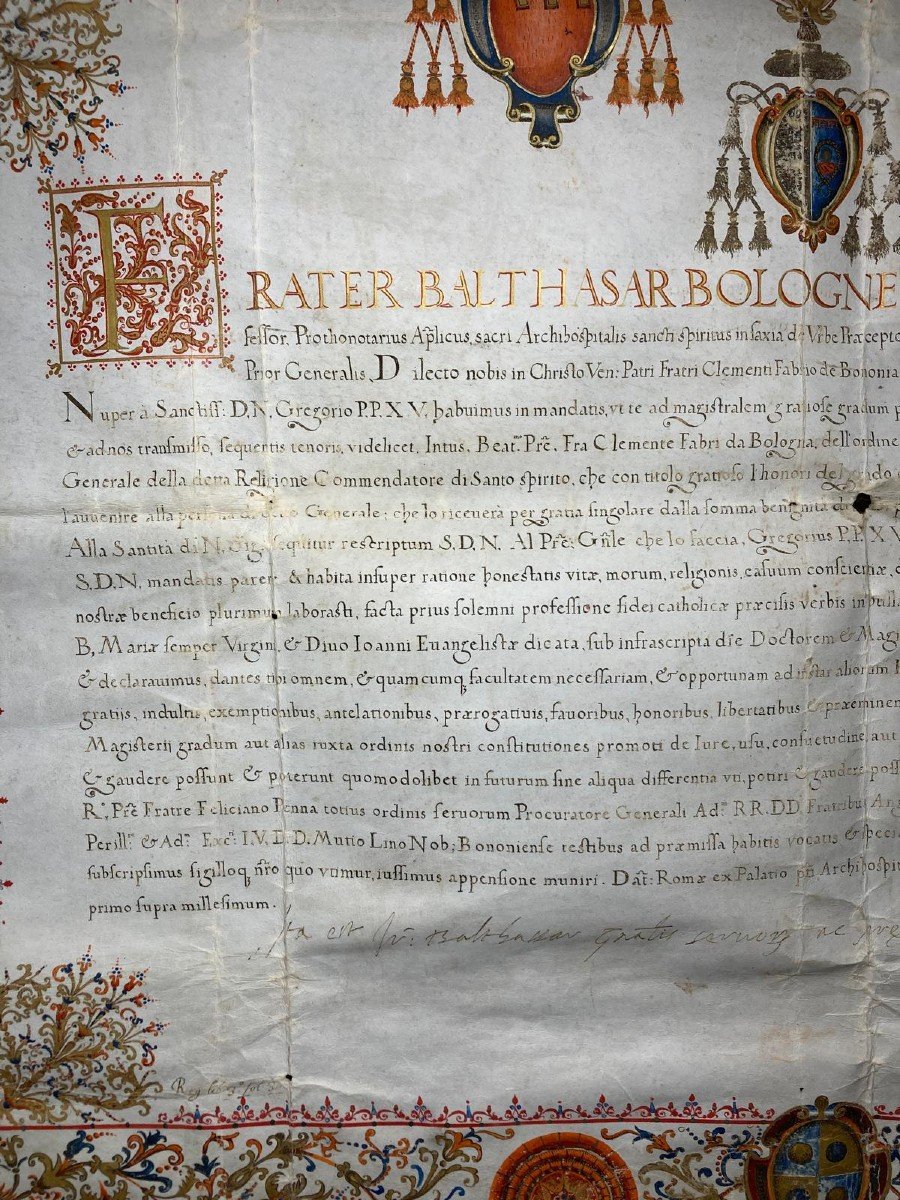 FRATER BALTHASAR BOLOGNE
fessor. Prothonotarius Aplicus, sacri Archihospitalis sancti spiritus in saxia de Vrbe Præcepto
Prior Generalis, Dilecto nobis in Christo Ven: Patri Fratri Clementi Fabrio de Bononia
Nuper à Sanctiss. D. N. Gregorio P. P. X V. habuimus in mandatis, vt te ad magistralem gratiose gradum p
& ad nos transmisso, sequentis tenoris, videlicet, Intus. Beat.mo Prẽ. Fra Clemente Fabri da Bologna, dell'ordine
Generale della detta Religione Commendatore di Santo spirito, che con titolo gratioso l'honori del grado
l'auuenire alla Generale; che lo riceuerà per gratia singolare dalla somma benignita
Alla Santità di N. Sig. sequitur rescriptum S. D. N. Al Prẽ: Gñle che lo faccia, Gregorius P. P. X V
S. D. N. mandatis parere & habita insuper ratione honestatis vitæ, morum, religionis, casuum conscientiæ,
nostræ beneficio plurimum laborasti, facta prius solemni professione fidei catholicæ præcisis verbis in bulla
B. Mariæ semper Virgini, & Diuo Ioanni Euangelistæ dicata, sub infrascripta die Doctorem & Magi
& declarauimus, dantes tibi omnem, & quamcumq, facultatem necessariam, & opportunam ad instar aliorum
gratijs, indultis, exemptionibus, antelationibus, prærogatiuis, fauoribus, honoribus, libertatibus & præeminen
Magisterij gradum aut alias iuxta ordinis nostri constitutiones promoti de Iure, usu, consuetudine, aut
& gaudere possunt & poterunt quomodolibet in futurum sine aliqua differentia vti, potiri & gaudere poss
R.do Prẽ Fratre Feliciano Penna totius ordinis seruorum Procuratore Generali Ad.m RR. DD. Fratribus An
Perill.ri & Ad.m Exc.ti I. V. D. D. Mutio Lino Nob; Bononiense testibus ad præmissa habitis vocatis & speci
subscripsimus sigilloq, nr̃o quo vtimur, iussimus appensione muniri. Dat: Romæ ex Palatio pñ Archihospit
primo supra millesimum.
Ita est fr: Balthassar